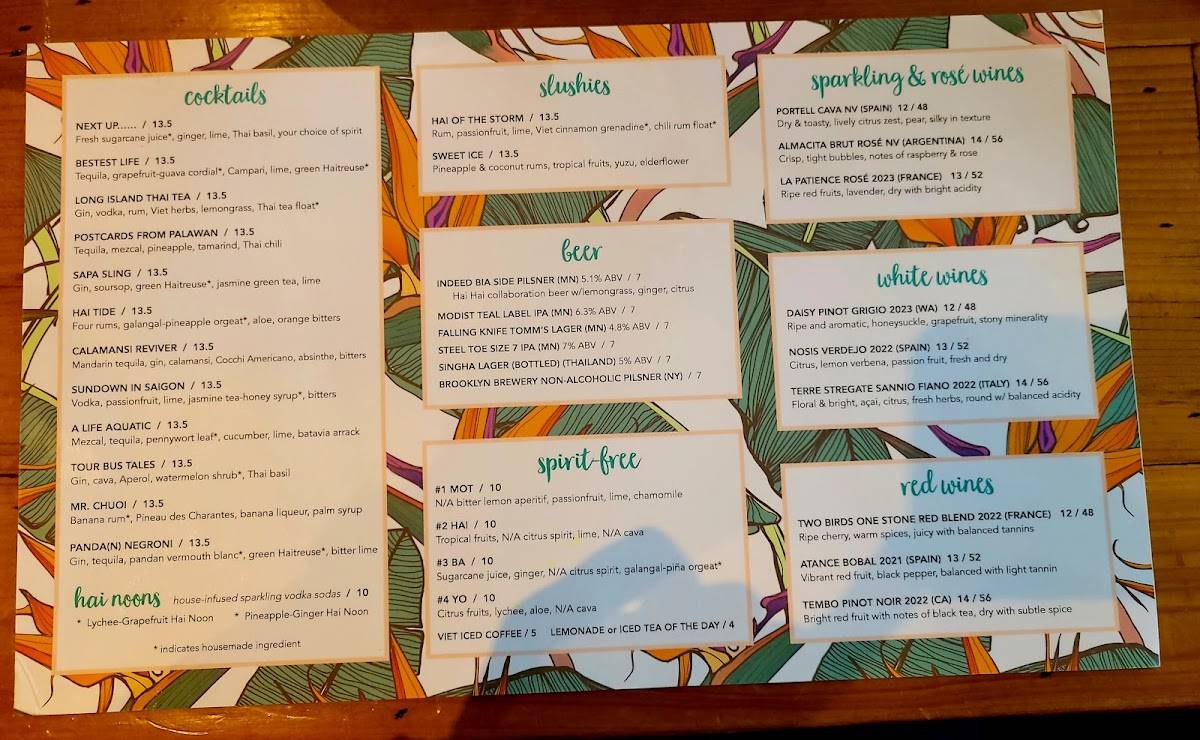 cocktails
NEXT UP...... / 13.5
Fresh sugarcane juice*, ginger, lime, Thai basil, your choice of spirit
BESTEST LIFE / 13.5
Tequila, grapefruit-guava cordial*, Campari, lime, green Haitreuse*
LONG ISLAND THAI TEA / 13.5
Gin, vodka, rum, Viet herbs, lemongrass, Thai tea float*
POSTCARDS FROM PALAWAN / 13.5
Tequila, mezcal, pineapple, tamarind, Thai chili
SAPA SLING / 13.5
Gin, soursop, green Haitreuse*, jasmine green tea, lime
HAI TIDE / 13.5
Four rums, galangal-pineapple orgeat*, aloe, orange bitters
CALAMANSI REVIVER / 13.5
Mandarin tequila, gin, calamansi, Cocchi Americano, absinthe, bitters
SUNDOWN IN SAIGON / 13.5
Vodka, passionfruit, lime, jasmine tea-honey syrup*, bitters
A LIFE AQUATIC / 13.5
Mezcal, tequila, pennywort leaf*, cucumber, lime, batavia arrack
TOUR BUS TALES / 13.5
Gin, cava, Aperol, watermelon shrub*, Thai basil
MR. CHUOI / 13.5
Banana rum*, Pineau des Charantes, banana liqueur, palm syrup
PANDA(N) NEGRONI / 13.5
Gin, tequila, pandan vermouth blanc*, green Haitreuse*, bitter lime
hai noons house-infused sparkling vodka sodas / 10
* Lychee-Grapefruit Hai Noon * Pineapple-Ginger Hai Noon
* indicates housemade ingredient
slushies
HAI OF THE STORM / 13.5
Rum, passionfruit, lime, Viet cinnamon grenadine*, chili rum float*
SWEET ICE / 13.5
Pineapple & coconut rums, tropical fruits, yuzu, elderflower
beer
INDEED BIA SIDE PILSNER (MN) 5.1% ABV / 7
Hai Hai collaboration beer w/lemongrass, ginger, citrus
MODIST TEAL LABEL IPA (MN) 6.3% ABV / 7
FALLING KNIFE TOMM'S LAGER (MN) 4.8% ABV / 7
STEEL TOE SIZE 7 IPA (MN) 7% ABV / 7
SINGHA LAGER (BOTTLED) (THAILAND) 5% ABV / 7
BROOKLYN BREWERY NON-ALCOHOLIC PILSNER (NY) / 7
spirit-free
#1 MOT / 10
N/A bitter lemon aperitif, passionfruit, lime, chamomile
#2 HAI / 10
Tropical fruits, N/A citrus spirit, lime, N/A cava
#3 BA / 10
Sugarcane juice, ginger, N/A citrus spirit, galangal-piña orgeat*
#4 YO / 10
Citrus fruits, lychee, aloe, N/A cava
VIET ICED COFFEE / 5 LEMONADE or ICED TEA OF THE DAY / 4
sparkling & rosé wines
PORTELL CAVA NV (SPAIN) 12 / 48
Dry & toasty, lively citrus zest, pear, silky in texture
ALMACITA BRUT ROSÉ NV (ARGENTINA) 14 / 56
Crisp, tight bubbles, notes of raspberry & rose
LA PATIENCE ROSÉ 2023 (FRANCE) 13 / 52
Ripe red fruits, lavender, dry with bright acidity
white wines
DAISY PINOT GRIGIO 2023 (WA) 12 / 48
Ripe and aromatic, honeysuckle, grapefruit, stony minerality
NOSIS VERDEJO 2022 (SPAIN) 13 / 52
Citrus, lemon verbena, passion fruit, fresh and dry
TERRE STREGATE SANNIO FIANO 2022 (ITALY) 14 / 56
Floral & bright, açai, citrus, fresh herbs, round w/ balanced acidity
red wines
TWO BIRDS ONE STONE RED BLEND 2022 (FRANCE) 12 / 48
Ripe cherry, warm spices, juicy with balanced tannins
ATANCE BOBAL 2021 (SPAIN) 13 / 52
Vibrant red fruit, black pepper, balanced with light tannin
TEMBO PINOT NOIR 2022 (CA) 14 / 56
Bright red fruit with notes of black tea, dry with subtle spice